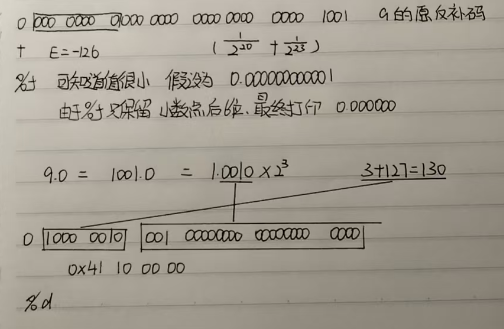 0 000 0000 0000 0000 0000 0000 0000 1001 9的原反补码
+ E=-126 (1/2^20 + 1/2^23)
%f 可知道值很小 假设为 0.00000000001
由于%f只保留小数点后6位,最终打印 0.000000
9.0 = 1001.0 = 1.0010×2^3 3+127=130
0 1000 0010 001 00000000 00000000 0000
0x41 10 00 00
%d